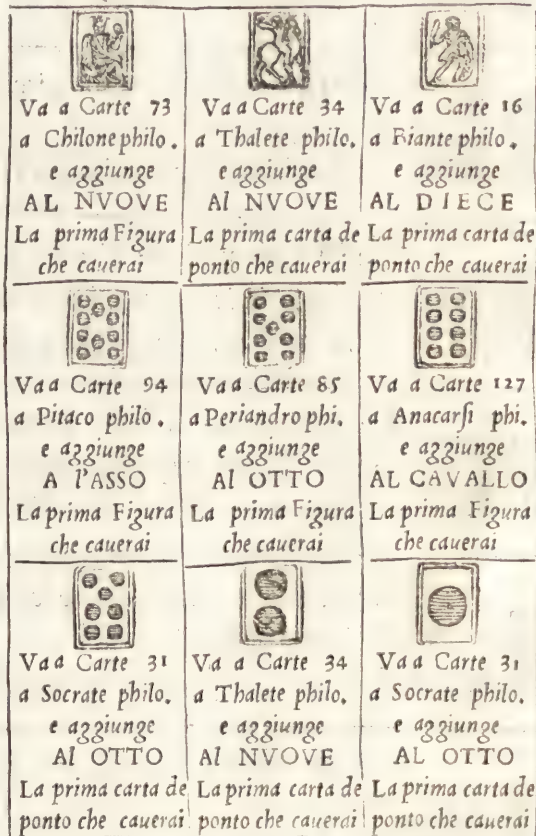 Va a Carte 73
a Chilone philo.
e aggiunge
AL NVOVE
La prima Figura
che cauerai
Va a Carte 34
a Thalete philo.
e aggiunge
Al NVOVE
La prima carta de
ponto che cauerai
Va a Carte 16
a Biante philo.
e aggiunge
AL DIECE
La prima carta de
ponto che cauerai
Va a Carte 94
a Pitaco philo.
e aggiunge
A l'ASSO
La prima Figura
che cauerai
Va a Carte 85
a Periandro phi.
e aggiunge
Al OTTO
La prima Figura
che cauerai
Va a Carte 127
a Anacarſi phi.
e aggiunge
AL CAVALLO
La prima Figura
che cauerai
Va a Carte 31
a Socrate philo.
e aggiunge
Al OTTO
La prima carta de
ponto che cauerai
Va a Carte 34
a Thalete philo.
e aggiunge
Al NVOVE
La prima carta de
ponto che cauerai
Va a Carte 31
a Socrate philo.
e aggiunge
AL OTTO
La prima carta de
ponto che cauerai